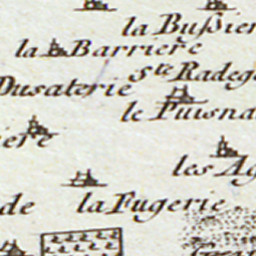 la Bußier
la Barriere
Ste Radeg
Dusaterie
le Puisna
iere
les Ag
de
la Fugerie